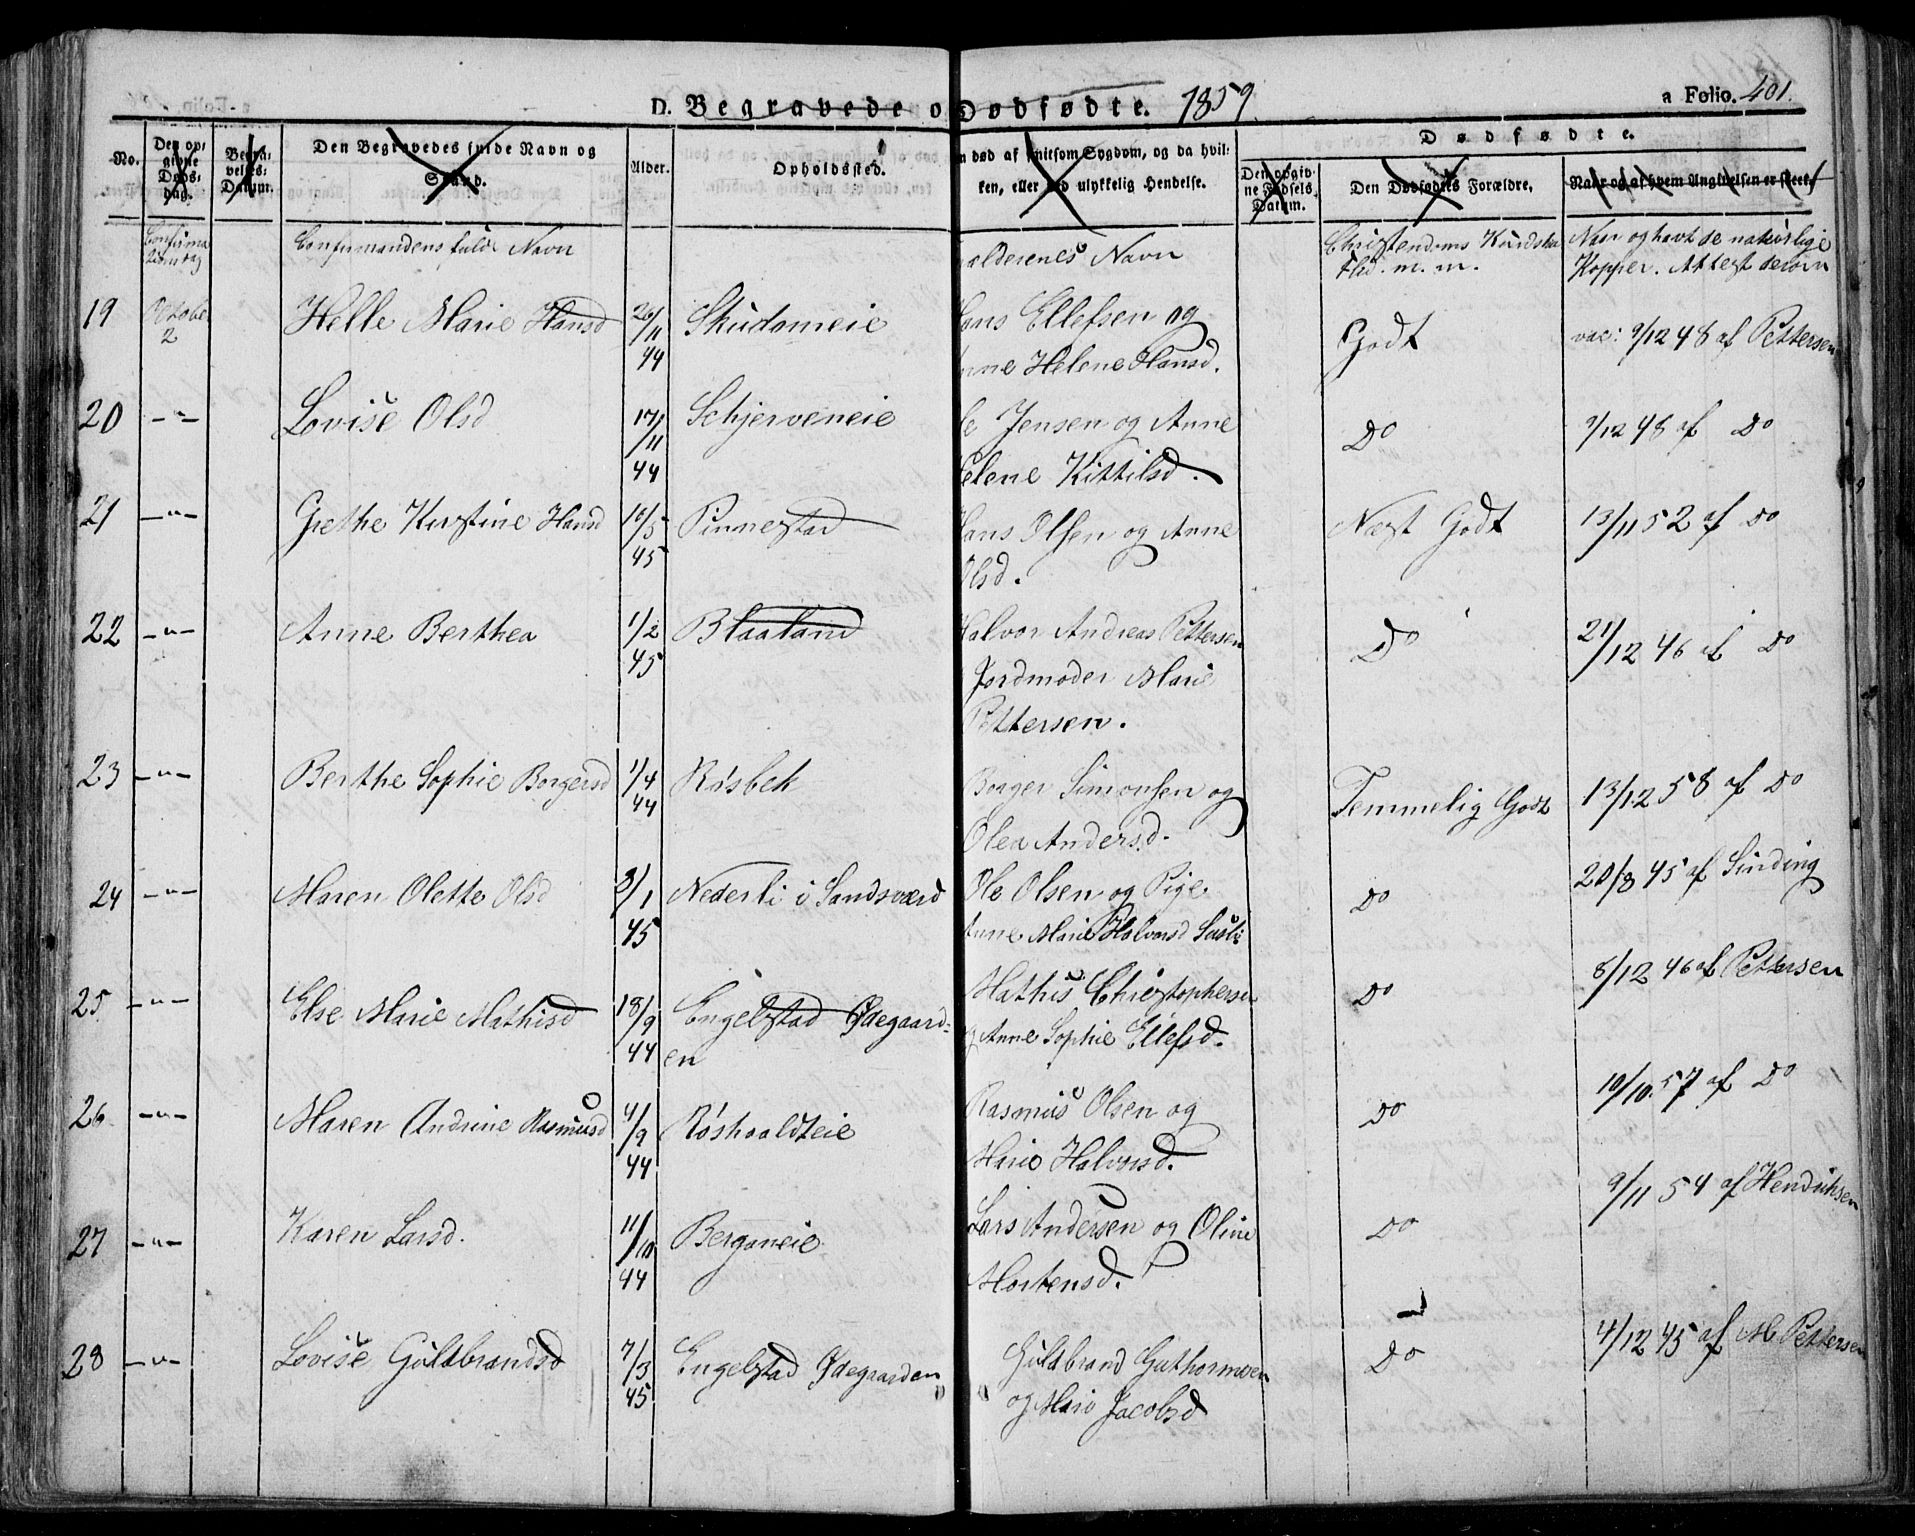 D. Begravede o Dødfødte. 1859. a Folio. 401.
No. Den opgivne Dødsdag. Begravelses-Datum. Den Begravedes fulde Navn og Stand. Alder. Opholdssted. n død af hvilken Sygdom, og da hvilken, eller ved ulykkelig Hendelse. Dødfødte.
Den opgivne Fødsels Datum. Den Dødfødtes Forældre. Naar og af hvem Angivelsen er skeet.
Confirmations dag Confirmandens fulde Navn ældrenes Navn Christendoms Kundskab Flid. m. m. Naar og havt de naturlige Kopper. Attest derom
19 October 2 Helle Marie Hansd 26/11 44 Skudameie Hans Ellefsen og Godt vac: 9/12 48 af Pettersen
Anne Helene Hansd.
20 -"- Lovise Olsd 17/11 44 Schjerveneie Ole Jensen og Anne Do 9/12 48 af Do
Helene Kittilsd.
21 -"- Grethe Kirstine Hansd 10/5 45 Pinnestad Hans Olsen og Anne Næst Godt 13/11 52 af Do
Olsd.
22 -"- Anne Berthea 1/2 45 Blaaland Halvor Andreas Pettersen Do 21/12 46 af Do
Jordmoder Marie
Pettersen.
23 -"- Berthe Sophie Borgersd 1/4 44 Røsbek Borger Simonsen og Temmelig Godt 13/12 58 af Do
Olea Andersd.
24 -"- Maren Olette Olsd 2/1 45 Nederli i Sandsværd Ole Olsen og Pige Do 20/8 45 af Sinding
Anne Marie Halvorsd
25 -"- Else Marie Mathisd 18/9 44 Engelstad Ødegaard- Mathis Christophersen Do 8/12 46 af Pettersen
en og Anne Sophie Ellefsd.
26 -"- Maren Andrine Rasmusd 4/9 44 Røshaoldteie Rasmus Olsen og Do 10/10 57 af Do
Marie Halvorsd.
27 -"- Karen Larsd. 11/10 44 Berganeie Lars Andersen og Oline Do 9/11 54 af Hendriksen
Mortensd.
28 -"- Lovise Guldbrandsd 7/3 45 Engelstad Ødegaarden " " Guldbrand Guthormsen Do 4/12 45 af M Pettersen
og Mari Jacobsd